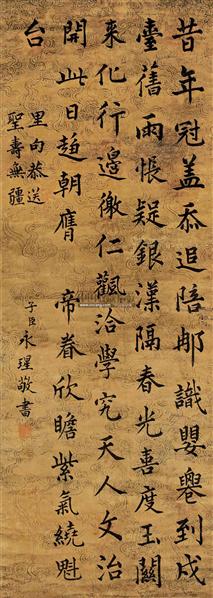 昔年冠盖忝追陪郍識嬰到戍
臺舊雨悵疑銀漢隔春光喜度玉關
来化行邊徼仁觀洽學究天人文治
開此日趋朝膺 帝眷欣瞻紫氣繞魁
台
里向恭送
聖壽無疆
子臣永瑆敬書